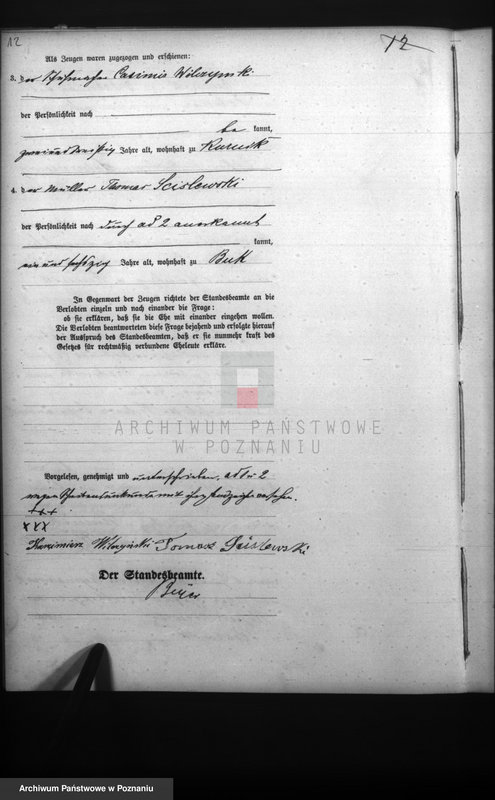 12
12
Als Zeugen waren zugezogen und erschienen:
3. der Schuhmacher Casimir Wilczynski
der Persönlichkeit nach
be kannt,
zweiunddreißig Jahre alt, wohnhaft zu Kurnik
4. der Müller Thomas Scislewski
der Persönlichkeit nach durch ad 2 anerkannt
kannt,
ein und sechszig Jahre alt, wohnhaft zu Buk
In Gegenwart der Zeugen richtete der Standesbeamte an die
Verlobten einzeln und nach einander die Frage:
ob sie erklären, daß sie die Ehe mit einander eingehen wollen.
Die Verlobten beantworteten diese Frage bejahend und erfolgte hierauf
der Ausspruch des Standesbeamten, daß er sie nunmehr kraft des
Gesetzes für rechtmäßig verbundene Eheleute erkläre.
ARCHIWUM PAŃSTWOWE
W POZNANIU
Vorgelesen, genehmigt und unterschrieben, ad 1 u 2
wegen Schreibensunkunde mit ihren Handzeichen versehen.
+++
XXX
Kazimierz Wilczyński Tomasz Ścislewski
Der Standesbeamte.
Beyer
Archiwum Państwowe w Poznaniu